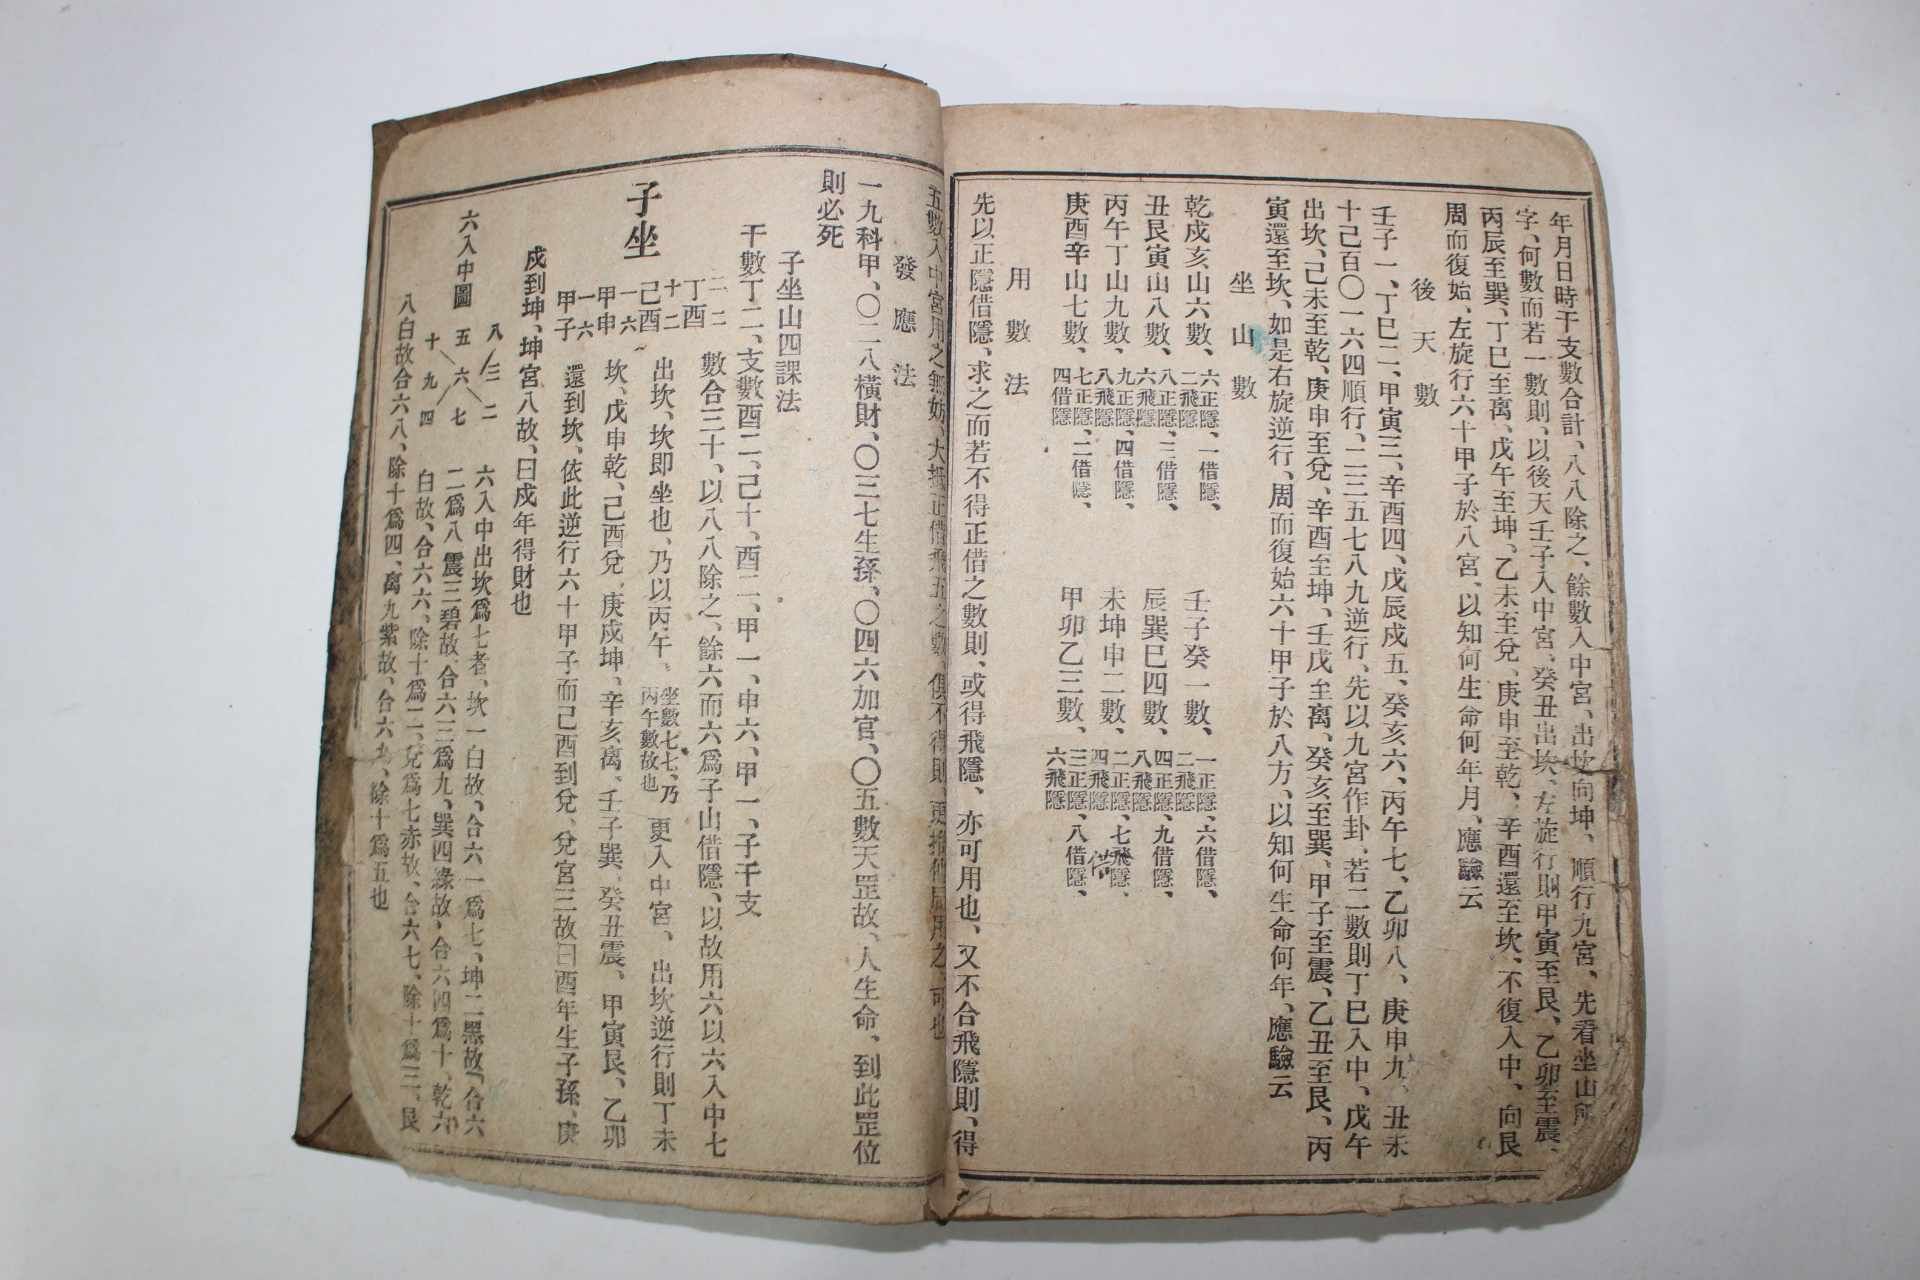 年月日時干支數合計、八八除之、餘數入中宮、出坎向坤、順行九宮、先看坐山所
字、何數而若一數則、以後天壬子入中宮、癸丑出坎、左旋行則甲寅至艮、乙卯至震、
丙辰至巽、丁巳至离、戊午至坤、乙未至兌、庚申至乾、辛酉還至坎、不復入中、向艮
周而復始、左旋行六十甲子於八宮、以知何生命何年月、應驗云
後天數
壬子一、丁巳二、甲寅三、辛酉四、戊辰戌五、癸亥六、丙午七、乙卯八、庚申九、丑未
十己百〇一六四順行、二三五七八九逆行、先以九宮作卦、若二數則丁巳入中、戊午
出坎、己未至乾、庚申至兌、辛酉至坤、壬戌至离、癸亥至巽、甲子至震、乙丑至艮、丙
寅還至坎、如是右旋逆行、周而復始六十甲子於八方、以知何生命何年、應驗云
坐山數
乾戌亥山六數、六正隱、一借隱、二飛隱 壬子癸一數、一正隱、六借隱、二飛隱
丑艮寅山八數、八正隱、三借隱、六飛隱 辰巽巳四數、四正隱、九借隱、八飛隱
丙午丁山九數、九正隱、四借隱、八飛隱 未坤申二數、二正隱、七飛隱、四飛隱 借
庚酉辛山七數、七正隱、二借隱、四借隱 甲卯乙三數、三正隱、八借隱、六飛隱
用數法
先以正隱借隱、求之而若不得正借之數則、或得飛隱、亦可用也、又不合飛隱則、得
五數入中宮用之無妨、大抵正借飛五之數、俱不得則、更推他局用之、可也
發應法
一九科甲、〇二八橫財、〇三七生孫、〇四六加官、〇五數天罡故、人生命、到此罡位
則必死
子坐山四課法
干數丁二、支數酉二、己十、酉二、甲一、申六、甲一、子千支
子坐
二二 丁酉
十二 己酉
一六 甲申
一六 甲子
數合三十、以八八除之、餘六而六爲子山借隱、以故用六以六入中七
出坎、坎即坐也、乃以丙午、坐數七七、乃丙午數故也 更入中宮、出坎逆行則丁未
坎、戊申乾、己酉兌、庚戌坤、辛亥离、壬子巽、癸丑震、甲寅艮、乙卯
還到坎、依此逆行六十甲子而己酉到兌、兌宮三故曰酉年生子孫、庚
戌到坤、坤宮八故、曰戌年得財也
六入中圖
八 三 二
五 六 七
十 九 四
六入中出坎爲七者、坎一白故、合六一爲七、坤二黑故、合六
二爲八 震三碧故、合六三爲九、巽四綠故、合六四爲十、乾六
白故、合六六、除十爲二、兌爲七赤故、合六七、除十爲三、艮
八白故合六八、除十爲四、离九紫故、合六九、除十爲五也